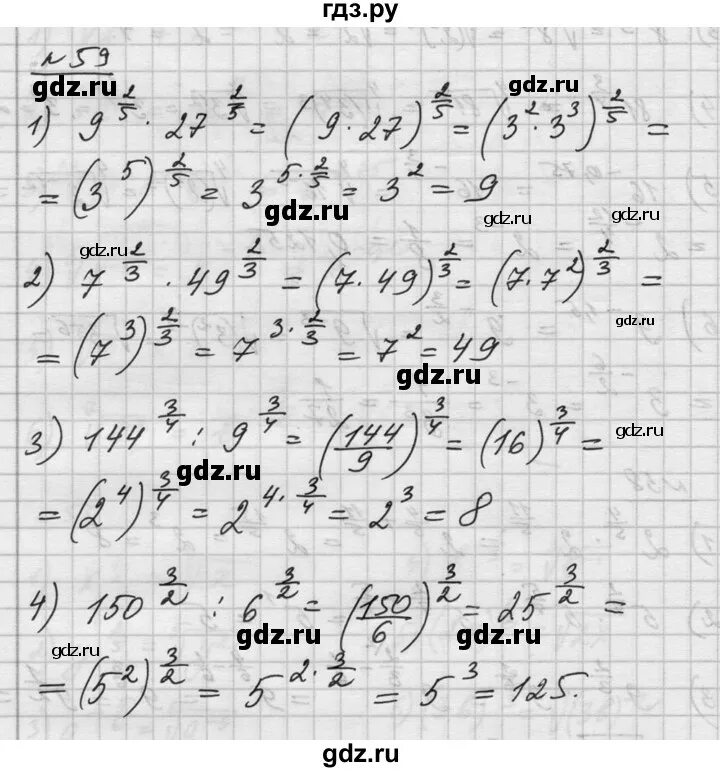 гдз.ру
№59
gdz.ru
gdz.ru
1) 9^(2/5) · 27^(2/5) = (9·27)^(2/5) = (3^2·3^3)^(2/5) =
= (3^5)^(2/5) = 3^(5·2/5) = 3^2 = 9
gdz.ru
gdz.ru
gdz.ru
2) 7^(2/3) · 49^(2/3) = (7·49)^(2/3) = (7·7^2)^(2/3) =
gdz.ru
= (7^3)^(2/3) = 7^(3·2/3) = 7^2 = 49
gdz.ru
3) 144^(3/4) : 9^(3/4) = (144/9)^(3/4) = (16)^(3/4) =
gdz.ru
gdz.ru
= (2^4)^(3/4) = 2^(4·3/4) = 2^3 = 8
4) 150^(3/2) : 6^(3/2) = (150/6)^(3/2) = 25^(3/2) =
gdz.ru
gdz.ru
gdz.ru
= (5^2)^(3/2) = 5^(2·3/2) = 5^3 = 125.
gdz.ru